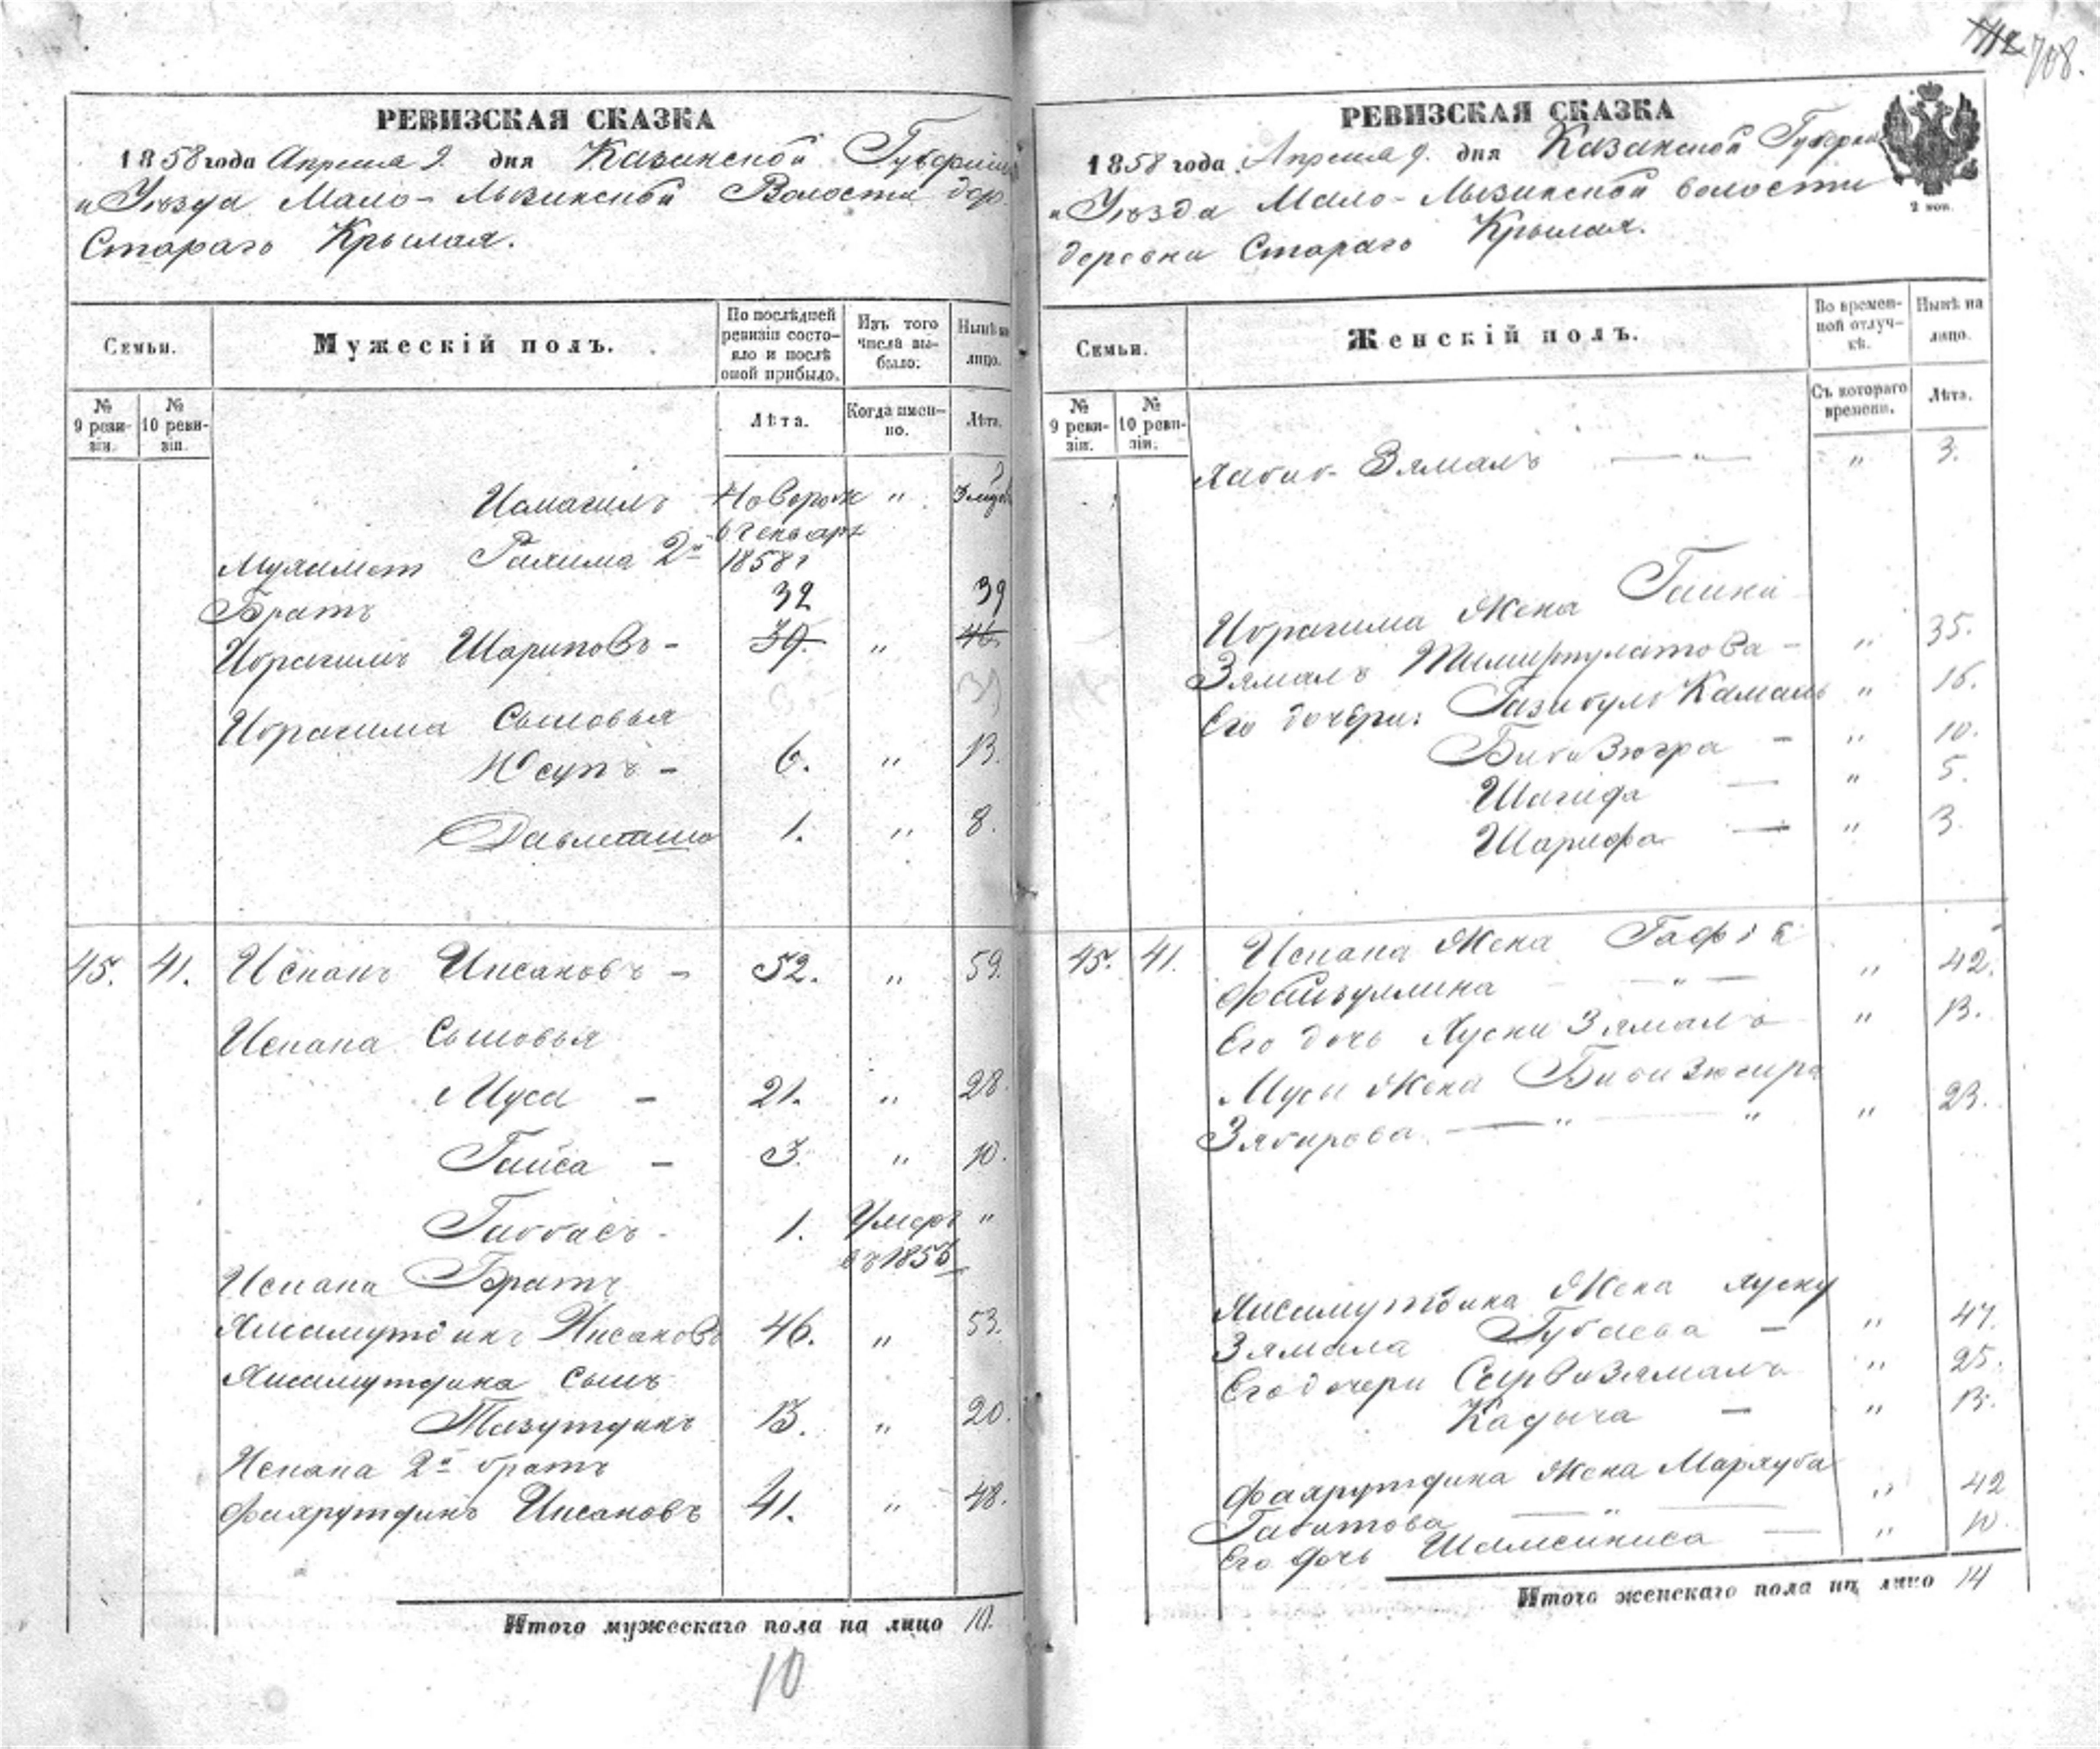 708.
РЕВИЗСКАЯ СКАЗКА
1858 года Апреля 9. дня Казанской Губерніи
и Уѣзда Мало-Лызинской Волости дер.
Стараго Крылая.
Семьи.
Мужескій полъ.
По послѣдней ревизіи состояло и послѣ оной прибыло.
Изъ того числа выбыло.
Нынѣ на лицо.
№ 9 ревизіи.
№ 10 ревизіи.
Лѣта.
Когда имен-но.
Лѣта.
Исмагилъ Новорож " 3 
6 Генваря
Мухамет Рахима 2й 1858 г
Братъ 32 39
Ибрагимъ Шариповъ - 39. " 46.
Ибрагима Сыновья
Юсупъ - 6. " 13.
Давлетша 1. " 8.
45. 41. Испанъ Ииcановъ - 52. " 59.
Испана Сыновья
Муса - 21. " 28.
Гайса - 3. " 10.
Габбасъ - 1. Умеръ "
въ 1853
Испана Братъ
Хисамутдинъ Ииcановъ 46. " 53.
Хисамутдина сынъ
Тазутдинъ 13. " 20.
Испана 2й братъ
Фахрутдинъ Ииcановъ 41. " 48.
Итого мужескаго пола на лицо 10.
10
РЕВИЗСКАЯ СКАЗКА
1858 года Апреля 9. дня Казанской Губерніи
и Уѣзда Мало-Лызинской волости
деревни Стараго Крылая.
2 коп.
Семьи.
Женскій полъ.
Во временной отлучкѣ.
Нынѣ на лицо.
№ 9 ревизіи.
№ 10 ревизіи.
Съ котораго времени.
Лѣта.
Хабиб-Зямалъ — " — " 3.
Ибрагима Жена Гайни
Зямалъ Тимирпулатова - " 35.
Его дочери: Газибуль Камаль " 16.
Биби Зюгра - " 10.
Шагида — " 5.
Шарифа — " 3.
45. 41. Испана Жена Гафія
Файзуллина — " — " 42.
Его дочь Хусни Зямалъ " 13.
Мусы Жена Биби Зюгира
Зябирова. — " — " " 23.
Хисамутдина Жена Хусну
Зямала Губаева - " 47.
Его дочери Сарвизямалъ " 25.
Кадыча - " 13.
Фахрутдина Жена Мархуба
Габитова — " — " 42
Его дочь Шамсиниса — " 10.
Итого женскаго пола на лицо 14